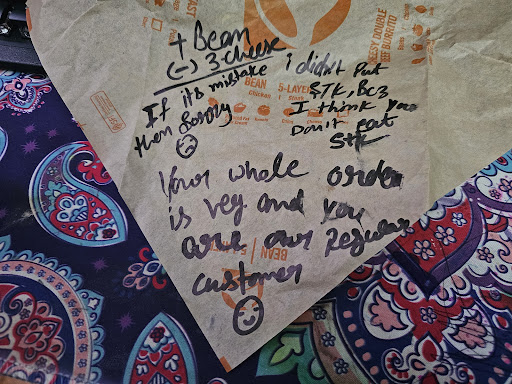 + Bean
(-) 3 cheese
If its mistake
then Sorory
i didn't Put
STK, BC3
I think you
Don't eat
STK
Your whole order
is veg and you
are our Regular
customer
EAST
CHEESY DOUBLE
BEEF BURRITO
BEAN
5-LAYER
BEAN